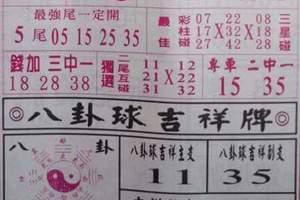 最強尾一定開
5尾 05 15 25 35
最佳 彩柱碰 三星碰
07 22 08
17X32X18
27 42 28
錢加 三中一
18 28 38
獨選 二尾互碰
11 12
21X22
31 32
專車 二中一
15 35
◎八卦球吉祥牌◎
八卦
八卦球吉祥主支
11
八卦球吉祥副支
35